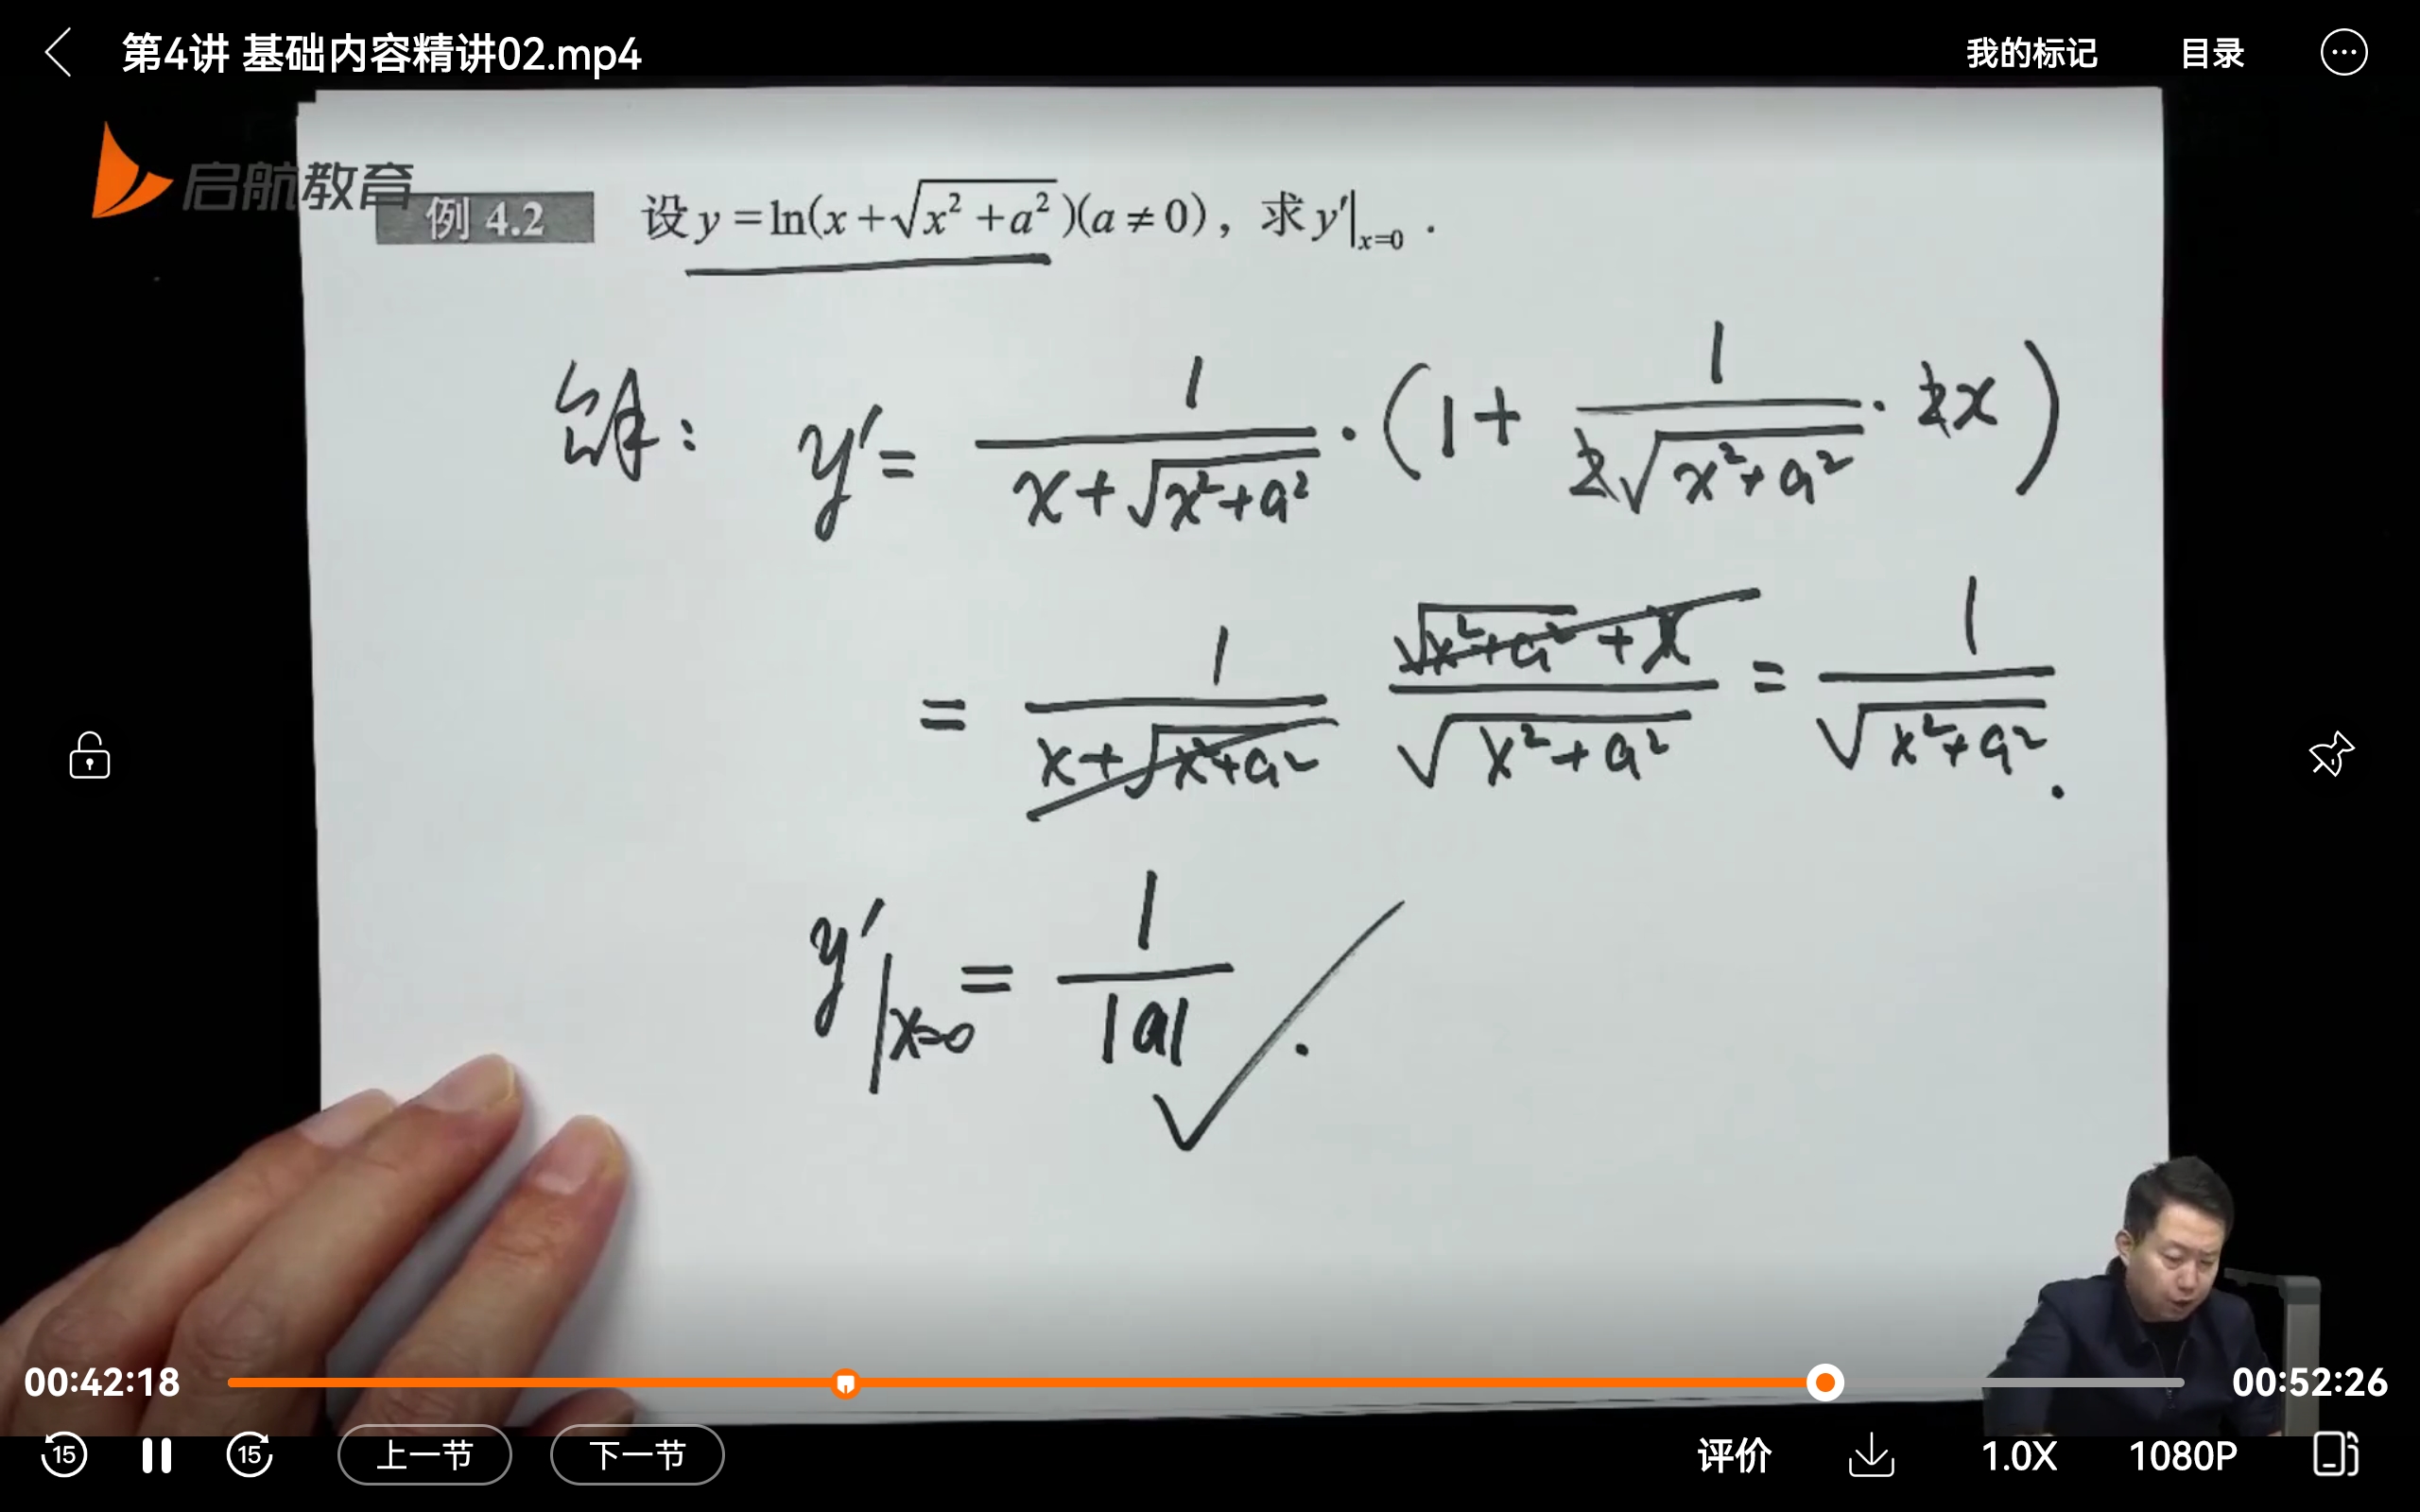 第4讲 基础内容精讲02.mp4
我的标记
目录
启航教育
例 4.2 设 y = ln(x + √(x² + a²))(a ≠ 0), 求 y′|ₓ₌₀ .
解: y′ = 1/(x + √(x² + a²)) · (1 + 1/(2√(x² + a²)) · 2x)
= 1/(x + √(x² + a²)) (√(x² + a²) + x)/√(x² + a²) = 1/√(x² + a²) .
y′|ₓ₌₀ = 1/|a| .
00:42:18
00:52:26
15
15
上一节
下一节
评价
1.0X
1080P